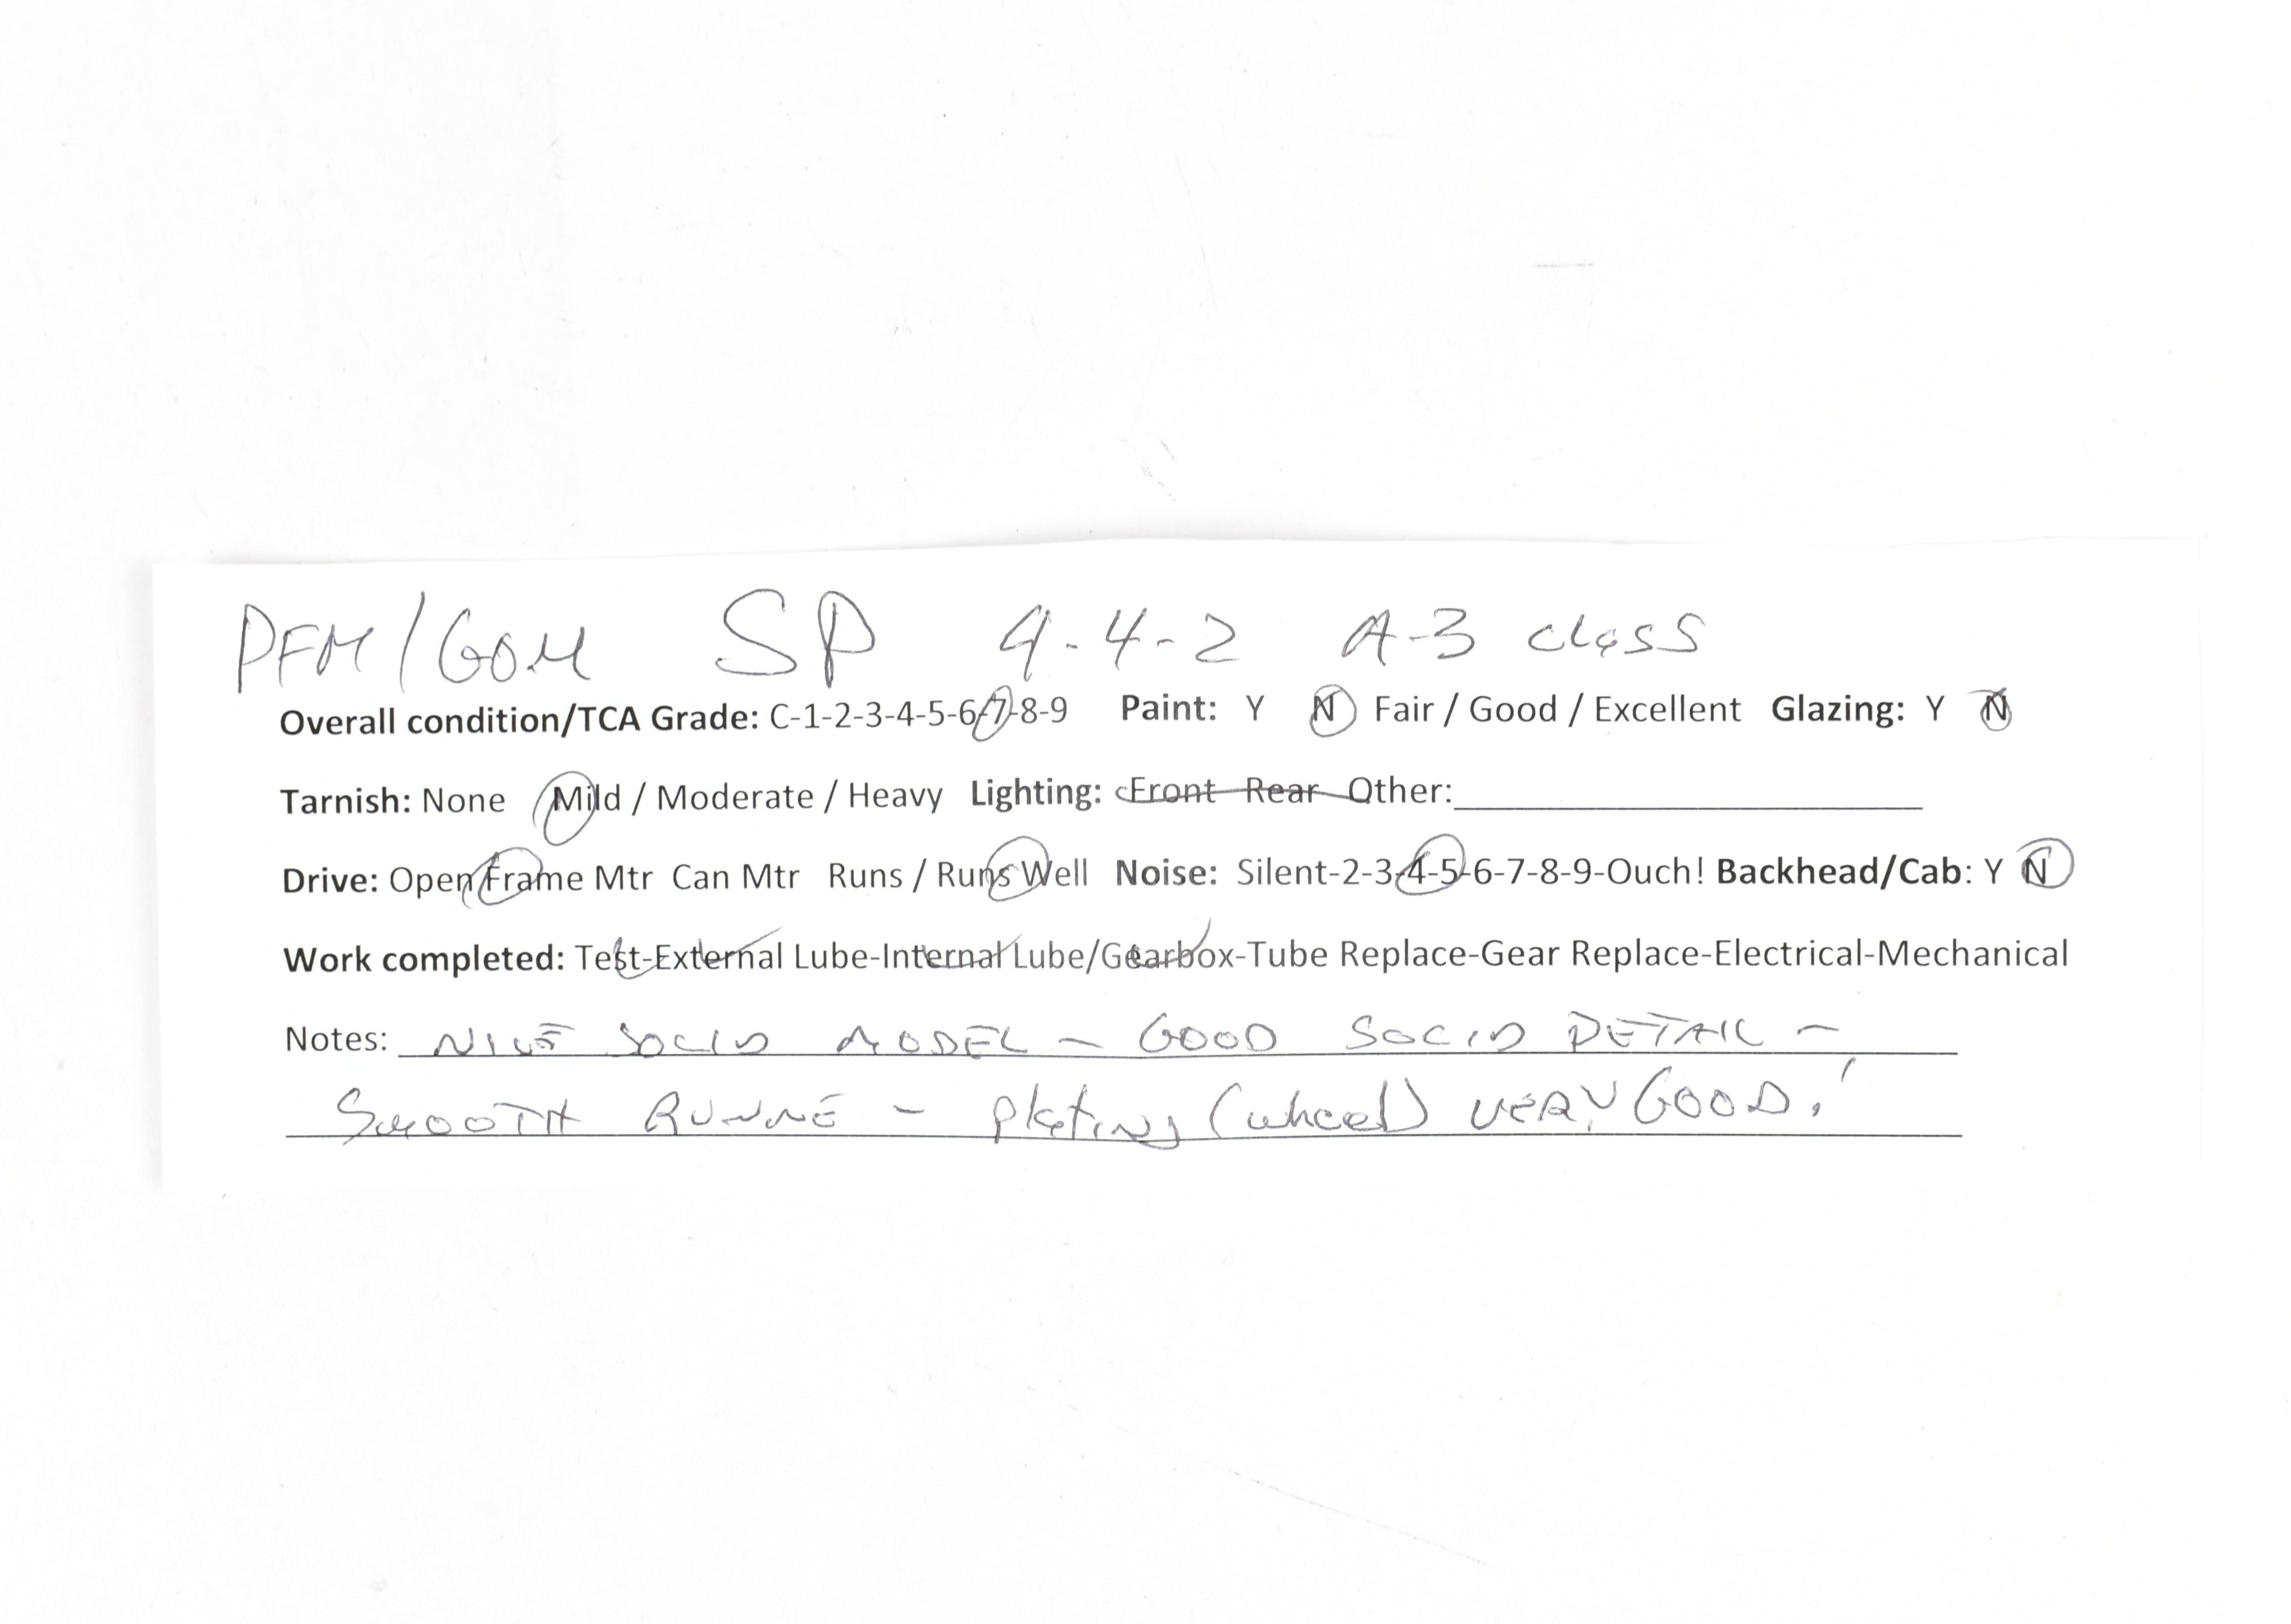 PFM/GOM SP 4-4-2 A-3 class
Overall condition/TCA Grade: C-1-2-3-4-5-6-7-8-9 Paint: Y N Fair / Good / Excellent Glazing: Y N
Tarnish: None Mild / Moderate / Heavy Lighting: Front Rear Other:
Drive: Open Frame Mtr Can Mtr Runs / Runs Well Noise: Silent-2-3-4-5-6-7-8-9-Ouch! Backhead/Cab: Y N
Work completed: Test-External Lube-Internal Lube/Gearbox-Tube Replace-Gear Replace-Electrical-Mechanical
Notes: NICE SOLID MODEL - GOOD SOLID DETAIL -
SMOOTH - plating (wheel) VERY GOOD!